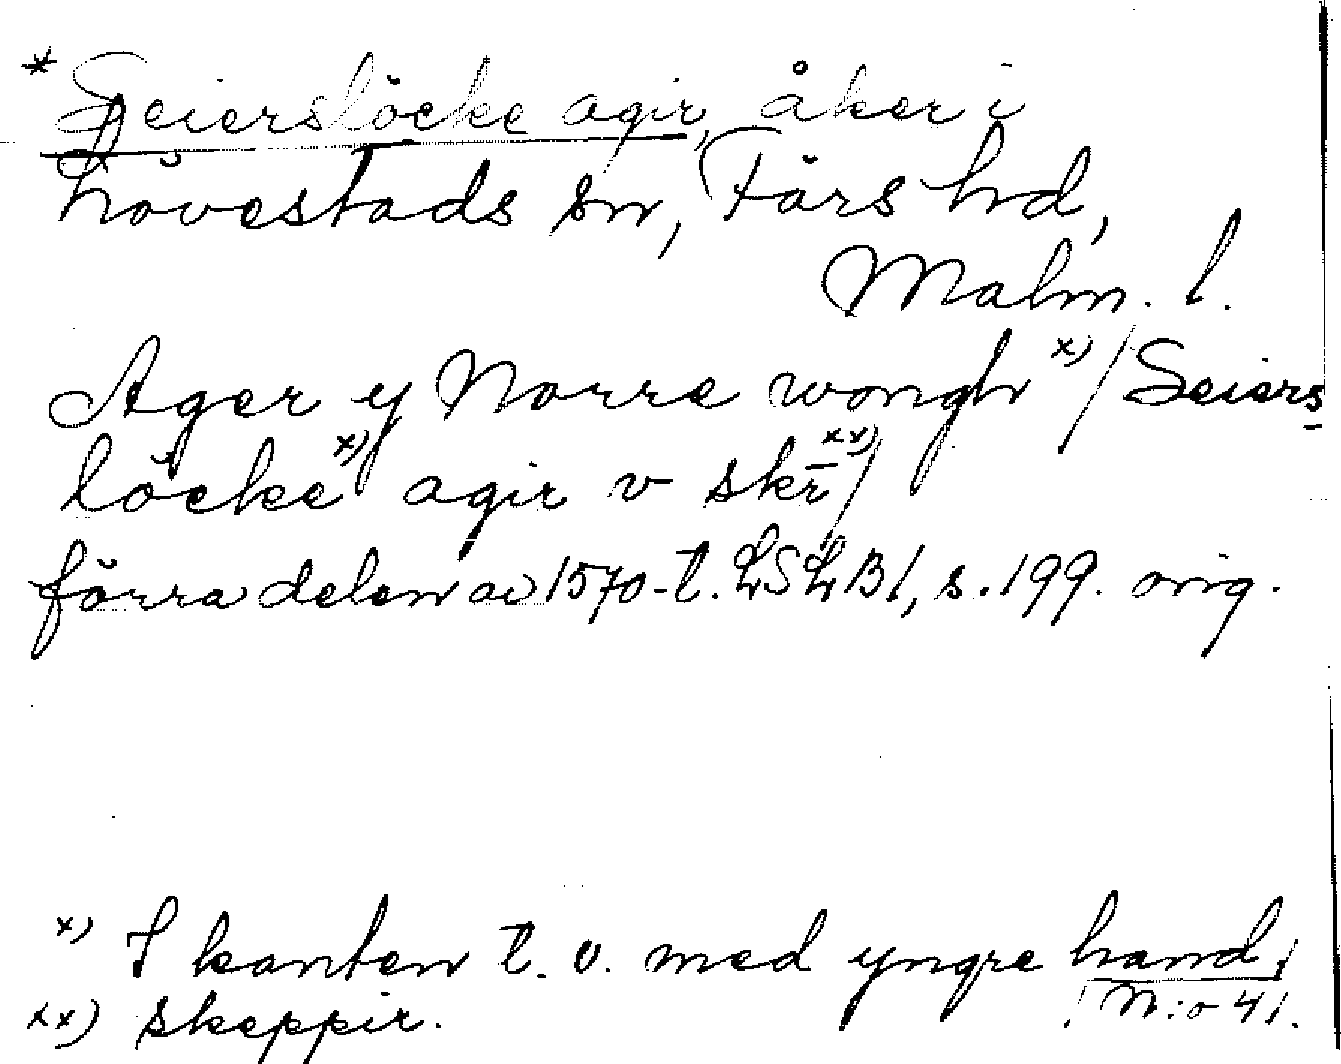 * Seierslöcke agir, åker i
Lövestads sn, Färs hd,
Malm. l.
Ager y Norre wongh x) / Seiers
löcke x) agir v skr̄ xx) /
förra delen av 1570-t. LSLB1, s. 199. orig.
x) I kanten t. v. med yngre hand:
N:o 41.
xx) skeppir.